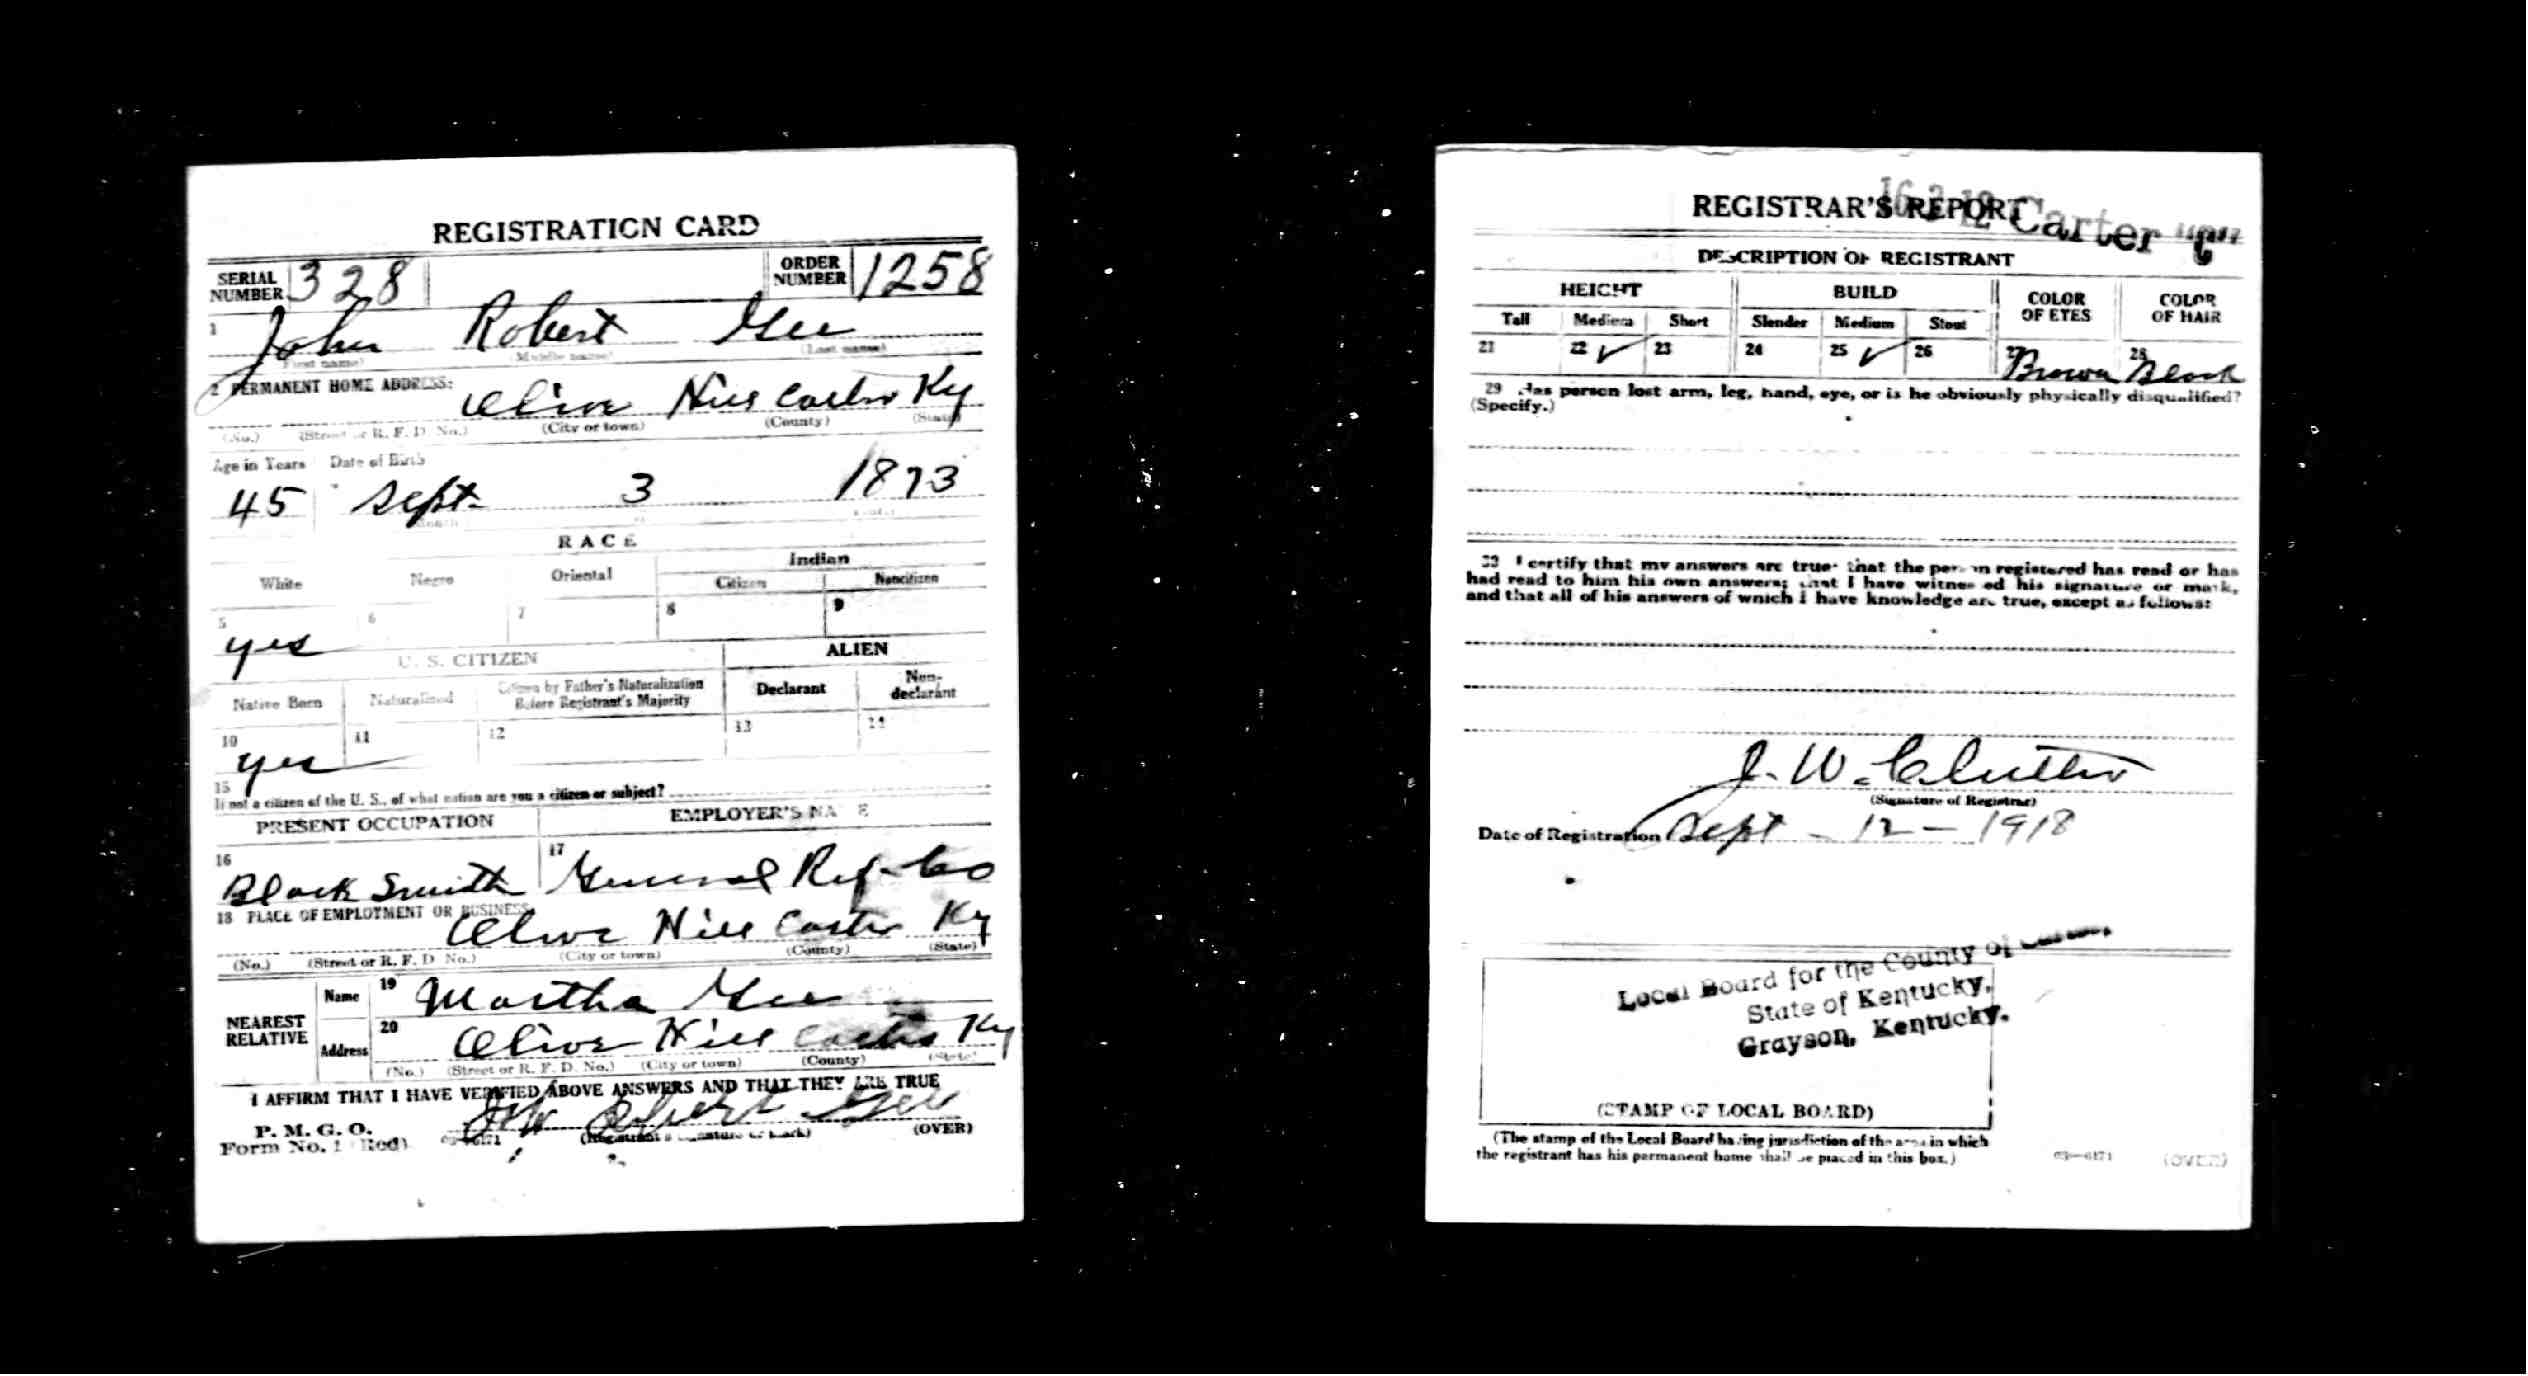 REGISTRATION CARD
SERIAL NUMBER 328 ORDER NUMBER 1258
1 John Robert Gee
(First name) (Middle name) (Last name)
2 PERMANENT HOME ADDRESS:
Olive Hill Carter Ky
(No.) (Street or R. F. D. No.) (City or town) (County) (State)
Age in Years Date of Birth
45 Sept. 3 1873
RACE
White Negro Oriental Indian
Citizen Noncitizen
5 6 7 8 9
yes
U. S. CITIZEN ALIEN
Native Born Naturalized Citizen by Father's Naturalization Before Registrant's Majority Declarant Non-declarant
10 11 12 13 14
yes
15
If not a citizen of the U. S., of what nation are you a citizen or subject?
PRESENT OCCUPATION EMPLOYER'S NA E
16 17
Black Smith General Ref. Co
18 PLACE OF EMPLOYMENT OR BUSINESS
Olive Hill Carter Ky
(No.) (Street or R. F. D. No.) (City or town) (County) (State)
NEAREST RELATIVE Name 19 Martha Gee
Address 20 Olive Hill Carter Ky
(No.) (Street or R. F. D. No.) (City or town) (County) (State)
I AFFIRM THAT I HAVE VERIFIED ABOVE ANSWERS AND THAT THEY ARE TRUE
P. M. G. O.
Form No. 1 (Red) Robert Gee
(Registrant's signature or mark) (OVER)
REGISTRAR'S REPORT
Carter
DESCRIPTION OF REGISTRANT
HEIGHT BUILD COLOR OF EYES COLOR OF HAIR
Tall Medium Short Slender Medium Stout
21 22 ✓ 23 24 25 ✓ 26 27 Brown 28 Black
29 Has person lost arm, leg, hand, eye, or is he obviously physically disqualified?
(Specify.)
30 I certify that my answers are true; that the person registered has read or has
had read to him his own answers; that I have witnessed his signature or mark,
and that all of his answers of which I have knowledge are true, except as follows:
J. W. Clutter
(Signature of Registrar)
Date of Registration Sept - 12 - 1918
Local Board for the County of Carter,
State of Kentucky,
Grayson, Kentucky.
(STAMP OF LOCAL BOARD)
(The stamp of the Local Board having jurisdiction of the area in which
the registrant has his permanent home shall be placed in this box.)
03—6171 (OVER)